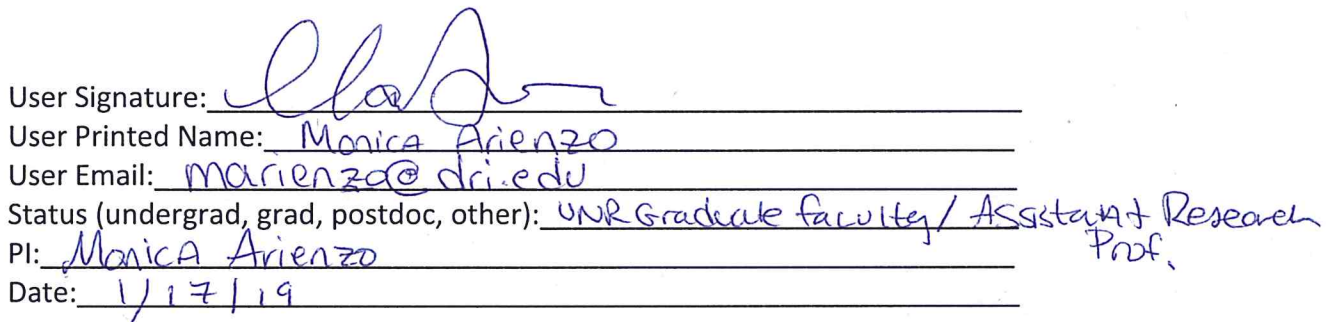 User Signature:
User Printed Name: Monica Arienzo
User Email: marienzo@dri.edu
Status (undergrad, grad, postdoc, other): UNR Graduate faculty / Assistant Research
Prof.
PI: Monica Arienzo
Date: 1/17/19